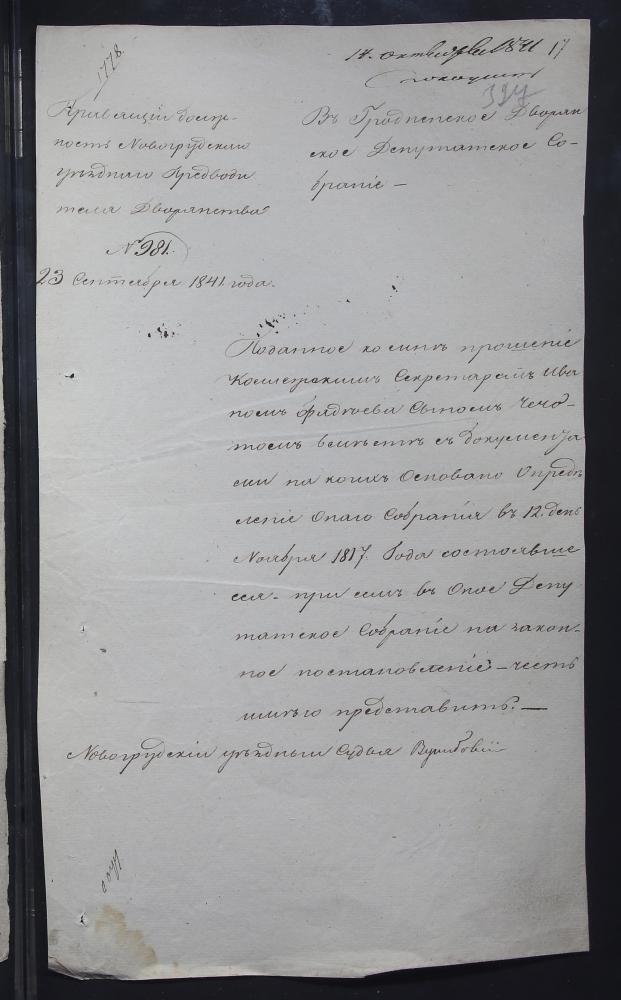 1778.
14. октября 1841
17
327
Правящій долж-
ность Новогрудскаго
уѣзднаго Предводи
теля Дворянства
№ 981.
23 Сентября 1841 года.
Въ Гродненское Дворян
ское Депутатское Со-
браніе —
Поданное ко мнѣ прошеніе
Коллежскимъ Секретаремъ Ива
номъ Фадѣевымъ Сыномъ Чечо-
томъ вмѣстѣ съ документа
ми на коихъ Основано Опредѣ
леніе Онаго Собранія въ 12. день
Ноября 1817. Года состоявше
еся - при семъ въ Оное Депу
татское Собраніе на закон-
ное постановленіе — честь
имѣю представить. —
Новогрудскій уѣздный Судья